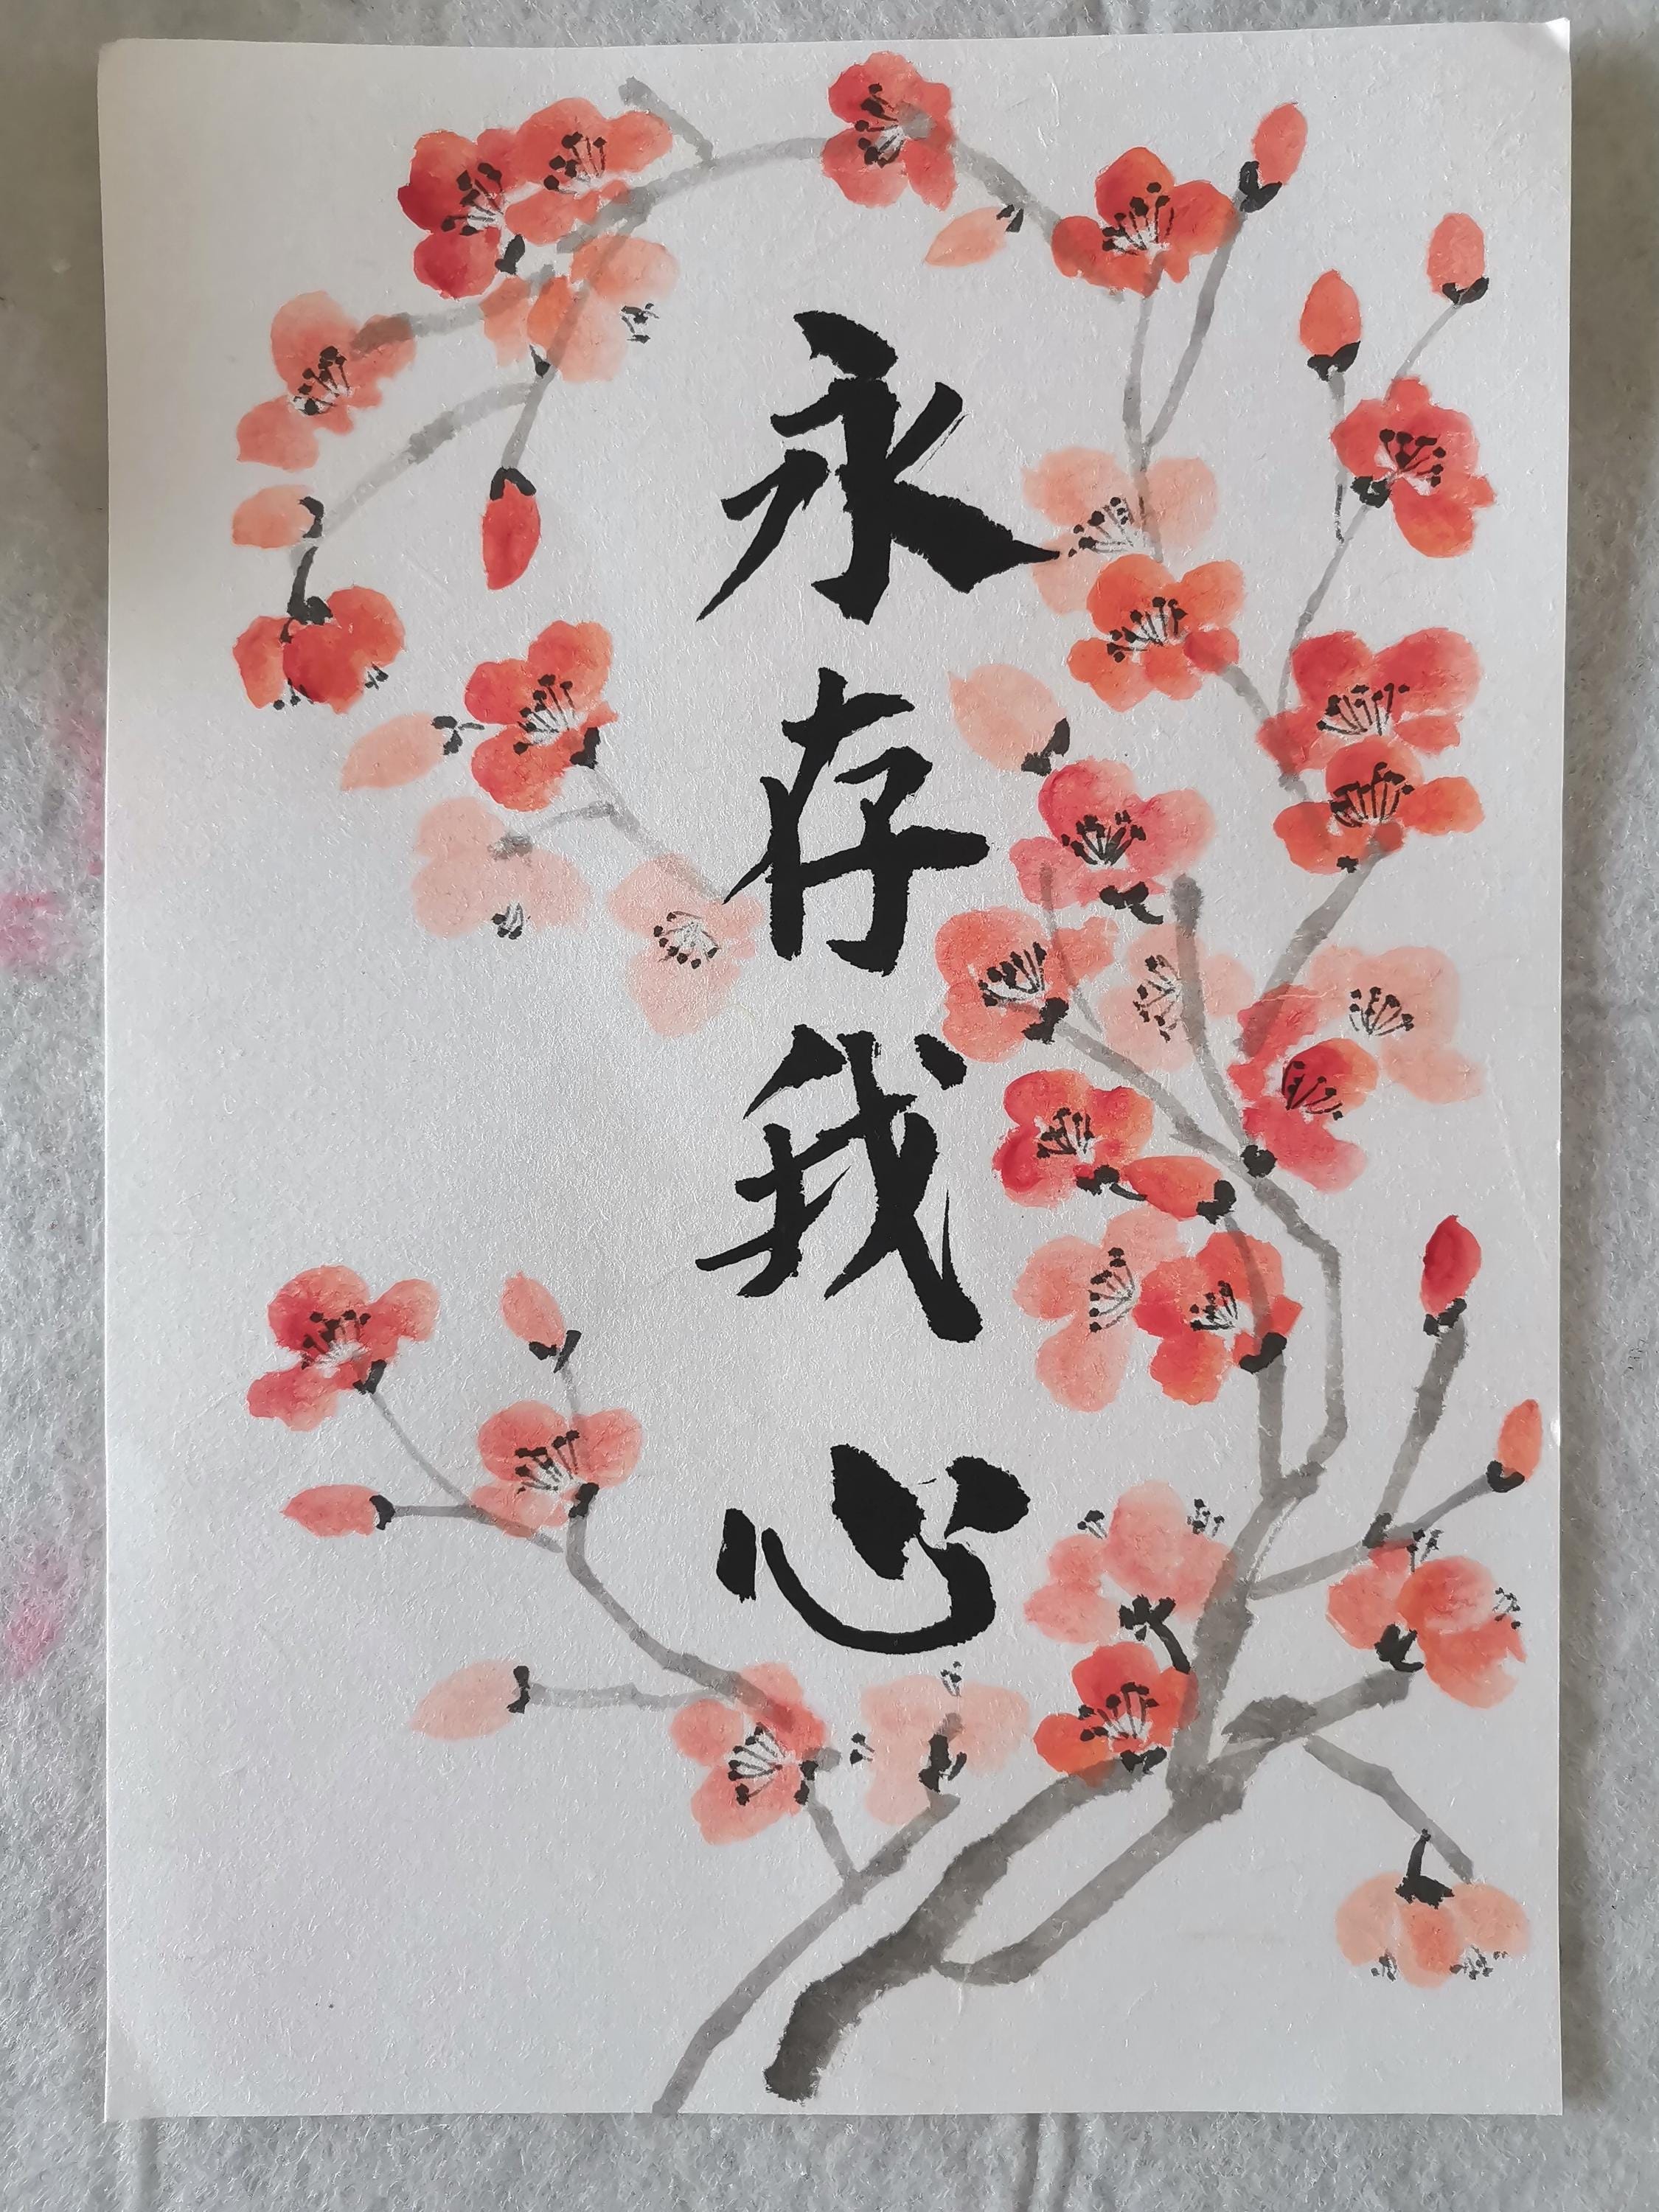 永存我心